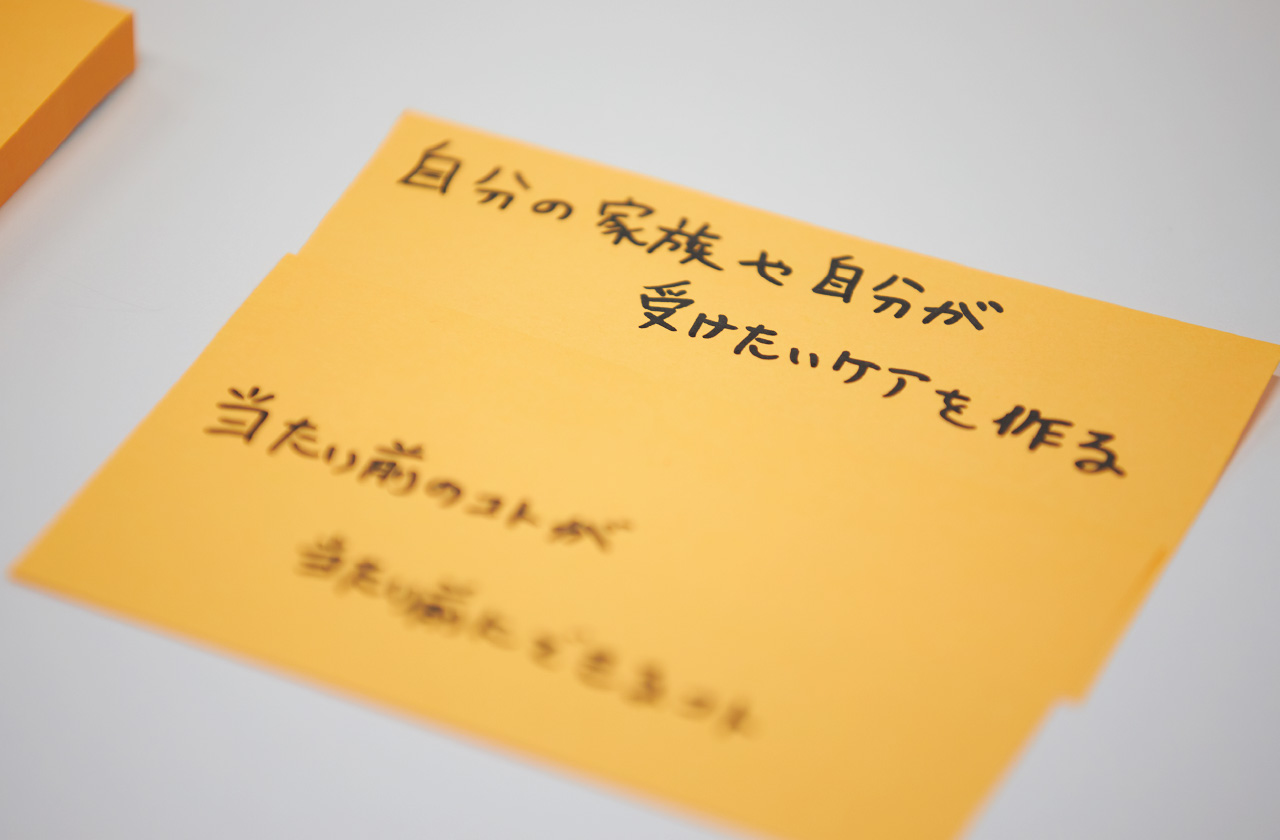 自分の家族や自分が
受けたいケアを作る
当たり前のコトが
当たり前にできるコト